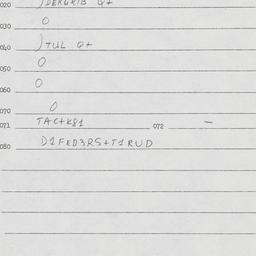 020 )DERGRIB Q+
030 O
040 )TUL Q+
050 O
060 O
070 O
071 TAC+K81 072 —
080 D1FED3RS+T1RUD